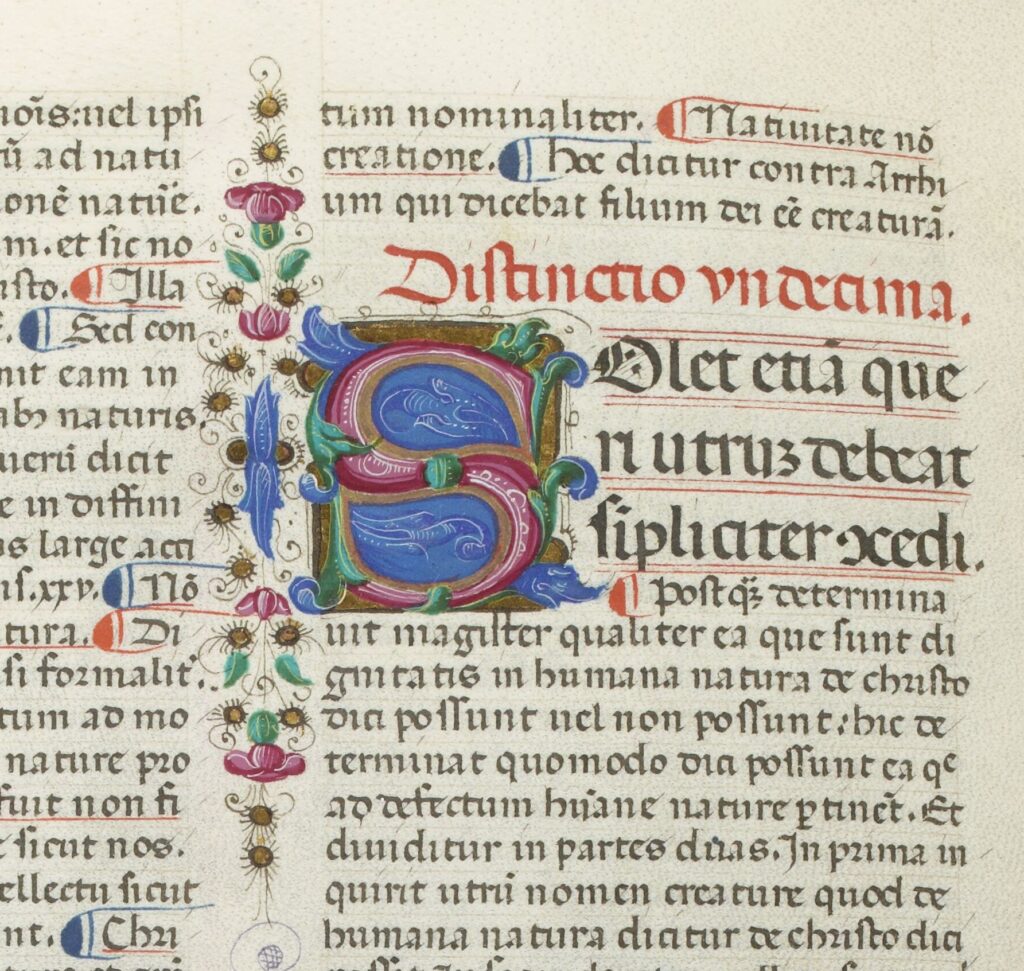 noīs: uel ipsi
rū ad natu
onē natūe.
m. et sic no
isto. Illa
Sed con
nit eam in
abꝫ naturis.
uerū dicit
e in diffini
us large acci
is. xxv. Nō
tura. Di
si formalit᷑.
tum ad mo
nature pro
fuit non fi
e sicut nos.
ellectu sicut
nt. Chri
tum nominaliter. Natiuitate nō
creatione. Hoc dicitur contra Arrhi
um qui dicebat filium dei eē creaturā.
Distinctio vndecima.
SOlet etiā que
ri utruꝫ debeat
sīpliciter ꝛcedi.
Postqꝫ determina
uit magister qualiter ea que sunt di
gnitatis in humana natura de christo
dici possunt uel non possunt: hic de
terminat quomodo dici possunt ea qͤ
ad defectum hūane nature ꝑtinēt. Et
diuiditur in partes duas. In prima in
quirit utrū nomen creature quod de
humana natura dicitur de christo dici